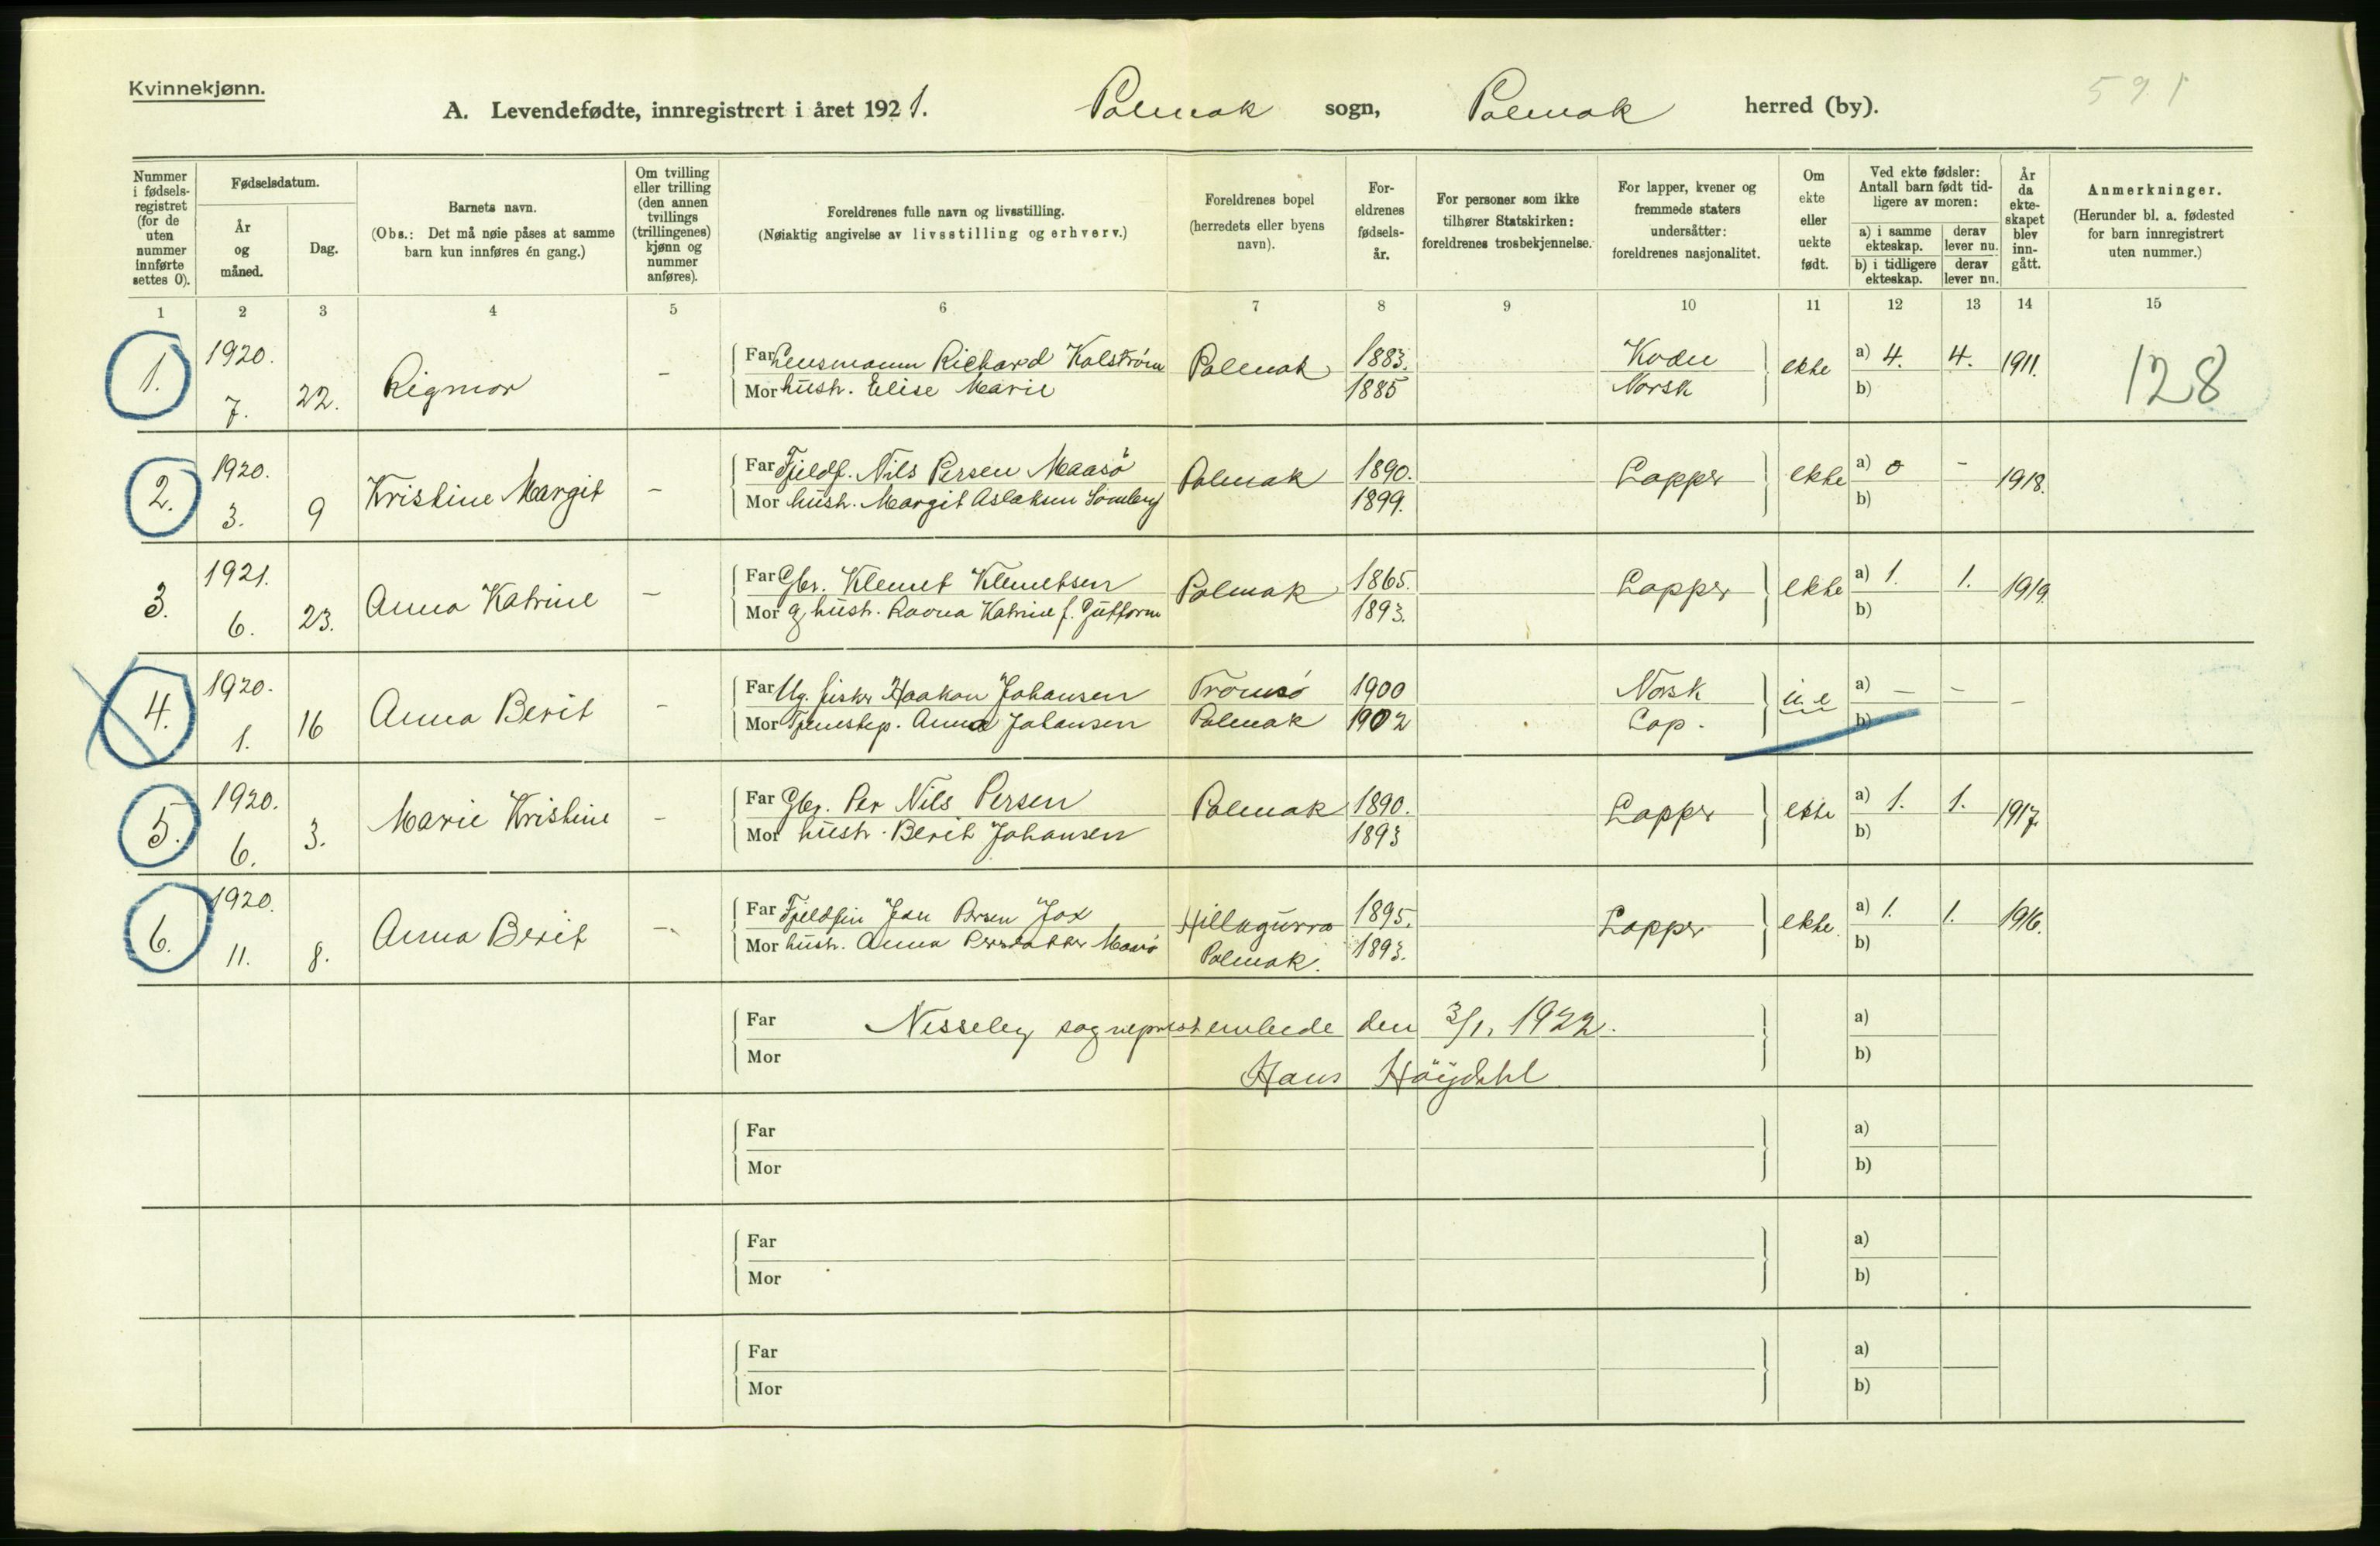 Kvinnekjønn.
591
A. Levendefødte, innregistrert i året 1921. Polmak sogn, Polmak herred (by).
Nummer i fødselsregistret (for de uten nummer innførte settes 0).
Fødselsdatum.
År og måned.
Dag.
Barnets navn.
(Obs.: Det må nøie påses at samme barn kun innføres én gang.)
Om tvilling eller trilling (den annen tvillings (trillingenes) kjønn og nummer anføres).
Foreldrenes fulle navn og livsstilling.
(Nøiaktig angivelse av livsstilling og erhverv.)
Foreldrenes bopel (herredets eller byens navn).
Foreldrenes fødselsår.
For personer som ikke tilhører Statskirken: foreldrenes trosbekjennelse.
For lapper, kvener og fremmede staters undersåtter: foreldrenes nasjonalitet.
Om ekte eller uekte født.
Ved ekte fødsler: Antall barn født tidligere av moren:
a) i samme ekteskap.
derav lever nu.
b) i tidligere ekteskap.
derav lever nu.
År da ekteskapet blev inngått.
Anmerkninger.
(Herunder bl. a. fødested for barn innregistrert uten nummer.)
1 2 3 4 5 6 7 8 9 10 11 12 13 14 15
1. 1920. 7. 22. Rigmor -
Far Lensmann Richard Kalstrøm Polmak 1883. Kvæn ekte a) 4. 4. 1911. 128
Mor hustr. Elise Marie 1885 Norsk b)
2. 1920. 3. 9 Kristine Margit -
Far Fjeldf. Nils Persen Maasö Polmak 1890. Lapper ekte a) 0 - 1918.
Mor hustr. Margit Aslaksen 1899. b)
3. 1921. 6. 23. Anna Katrine -
Far Gbr. Klemet Klemetsen Polmak 1865. Lapper ekte a) 1. 1. 1919.
Mor g hustr. Ravna Katrine f. Guttorm 1893. b)
4. 1920. 1. 16 Anna Berit -
Far Ug. fisker Haakon Johansen Tromsö 1900 Norsk u.e a) - - -
Mor Tjenestep. Anna Johansen Polmak 1902 Lap. b)
5. 1920. 6. 3. Marie Kristine -
Far Gbr. Per Nils Persen Polmak 1890. Lapper ekte a) 1. 1. 1917.
Mor hustr. Berit Johansen 1893 b)
6. 1920. 11. 8. Anna Berit -
Far Fjeldfin Jon Persen Jox Hillagurra 1895. Lapper ekte. a) 1. 1. 1916.
Mor hustr. Anna Persdatter Maasö Polmak. 1893. b)
Far Nesseby sogneprestembede den 3/1. 1922. a)
Mor Hans Höydahl b)
Far a)
Mor b)
Far a)
Mor b)
Far a)
Mor b)